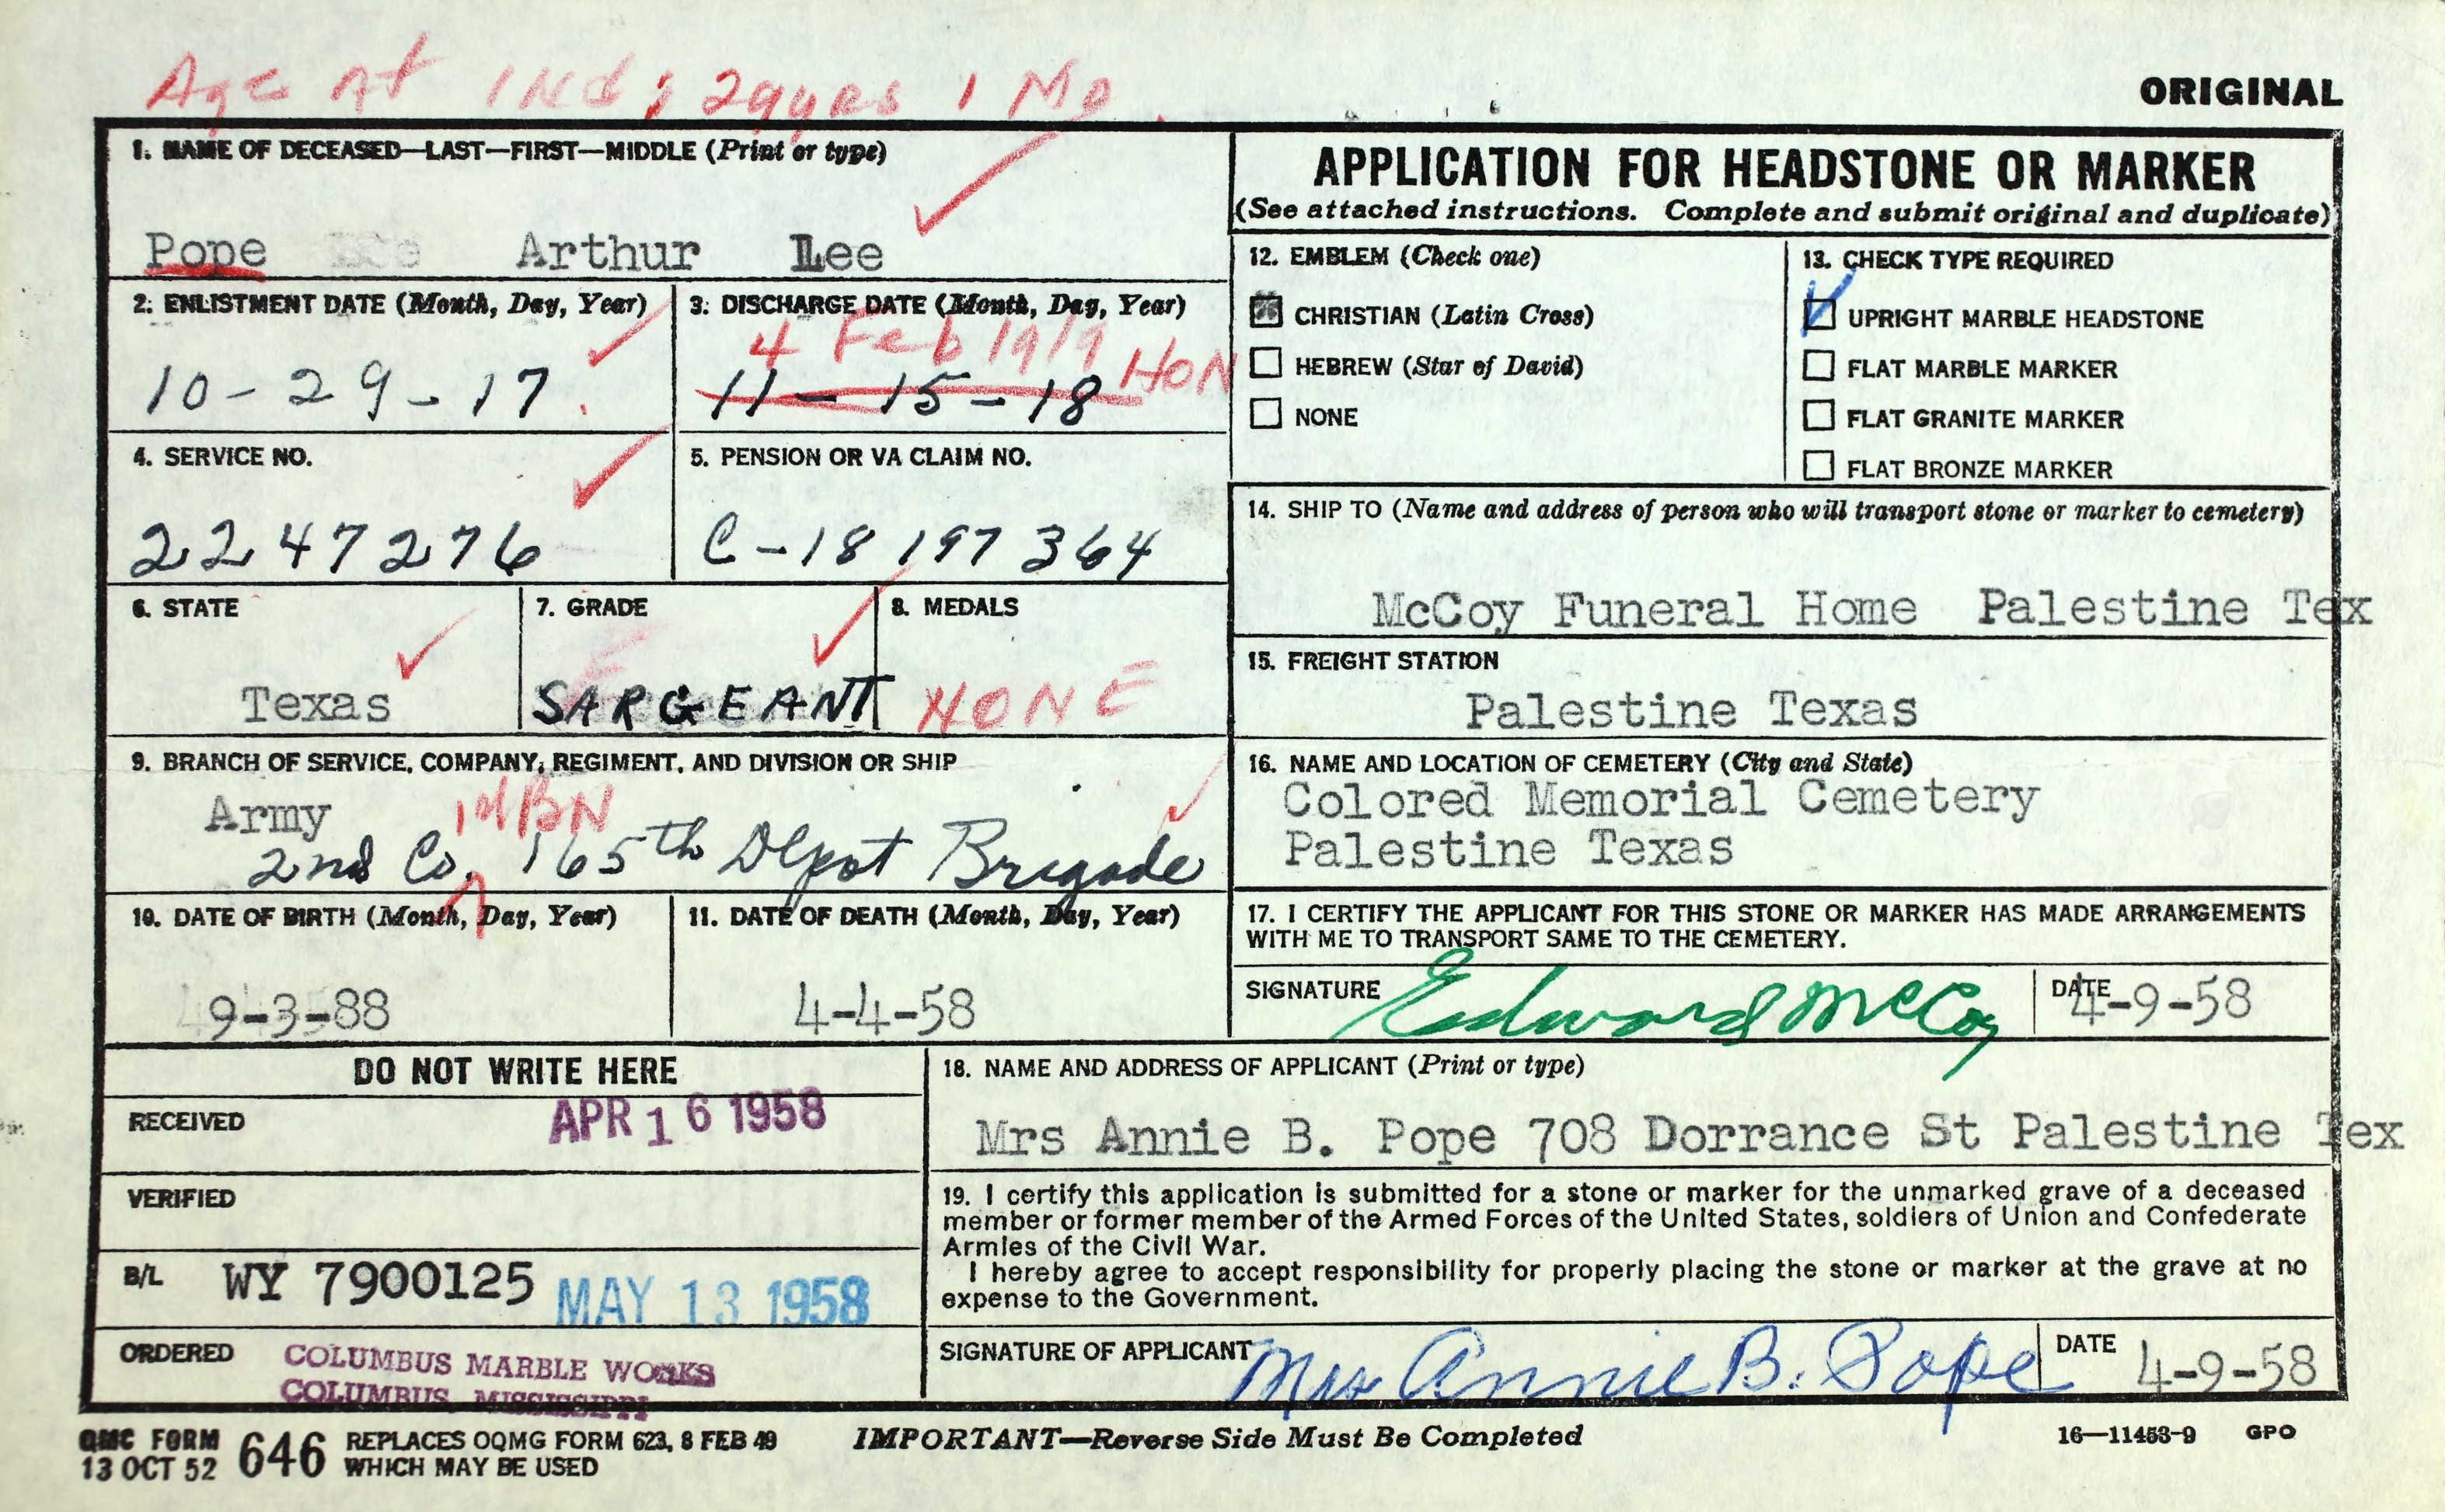 Age At IND; 29yrs 1 Mo.
ORIGINAL
1. NAME OF DECEASED—LAST—FIRST—MIDDLE (Print or type)
Pope Arthur Lee
2. ENLISTMENT DATE (Month, Day, Year)
10-29-17
3. DISCHARGE DATE (Month, Day, Year)
4 Feb 1919 HON
11-15-18
4. SERVICE NO.
2247276
5. PENSION OR VA CLAIM NO.
C-18 197 364
6. STATE
Texas
7. GRADE
SARGEANT
8. MEDALS
NONE
9. BRANCH OF SERVICE, COMPANY, REGIMENT, AND DIVISION OR SHIP
Army
BN
2nd Co, 165th Depot Brigade
10. DATE OF BIRTH (Month, Day, Year)
9-3-88
11. DATE OF DEATH (Month, Day, Year)
4-4-58
APPLICATION FOR HEADSTONE OR MARKER
(See attached instructions. Complete and submit original and duplicate)
12. EMBLEM (Check one)
CHRISTIAN (Latin Cross)
HEBREW (Star of David)
NONE
13. CHECK TYPE REQUIRED
UPRIGHT MARBLE HEADSTONE
FLAT MARBLE MARKER
FLAT GRANITE MARKER
FLAT BRONZE MARKER
14. SHIP TO (Name and address of person who will transport stone or marker to cemetery)
McCoy Funeral Home Palestine Tex
15. FREIGHT STATION
Palestine Texas
16. NAME AND LOCATION OF CEMETERY (City and State)
Colored Memorial Cemetery
Palestine Texas
17. I CERTIFY THE APPLICANT FOR THIS STONE OR MARKER HAS MADE ARRANGEMENTS
WITH ME TO TRANSPORT SAME TO THE CEMETERY.
SIGNATURE Edward McCoy
DATE 4-9-58
DO NOT WRITE HERE
RECEIVED APR 16 1958
VERIFIED
B/L WY 7900125 MAY 13 1958
ORDERED COLUMBUS MARBLE WORKS
COLUMBUS, MISSISSIPPI
18. NAME AND ADDRESS OF APPLICANT (Print or type)
Mrs Annie B. Pope 708 Dorrance St Palestine Tex
19. I certify this application is submitted for a stone or marker for the unmarked grave of a deceased
member or former member of the Armed Forces of the United States, soldiers of Union and Confederate
Armies of the Civil War.
I hereby agree to accept responsibility for properly placing the stone or marker at the grave at no
expense to the Government.
SIGNATURE OF APPLICANT Mrs Annie B. Pope
DATE 4-9-58
QMC FORM 13 OCT 52 646 REPLACES OQMG FORM 623, 8 FEB 49
WHICH MAY BE USED
IMPORTANT—Reverse Side Must Be Completed
16—11453-9 GPO